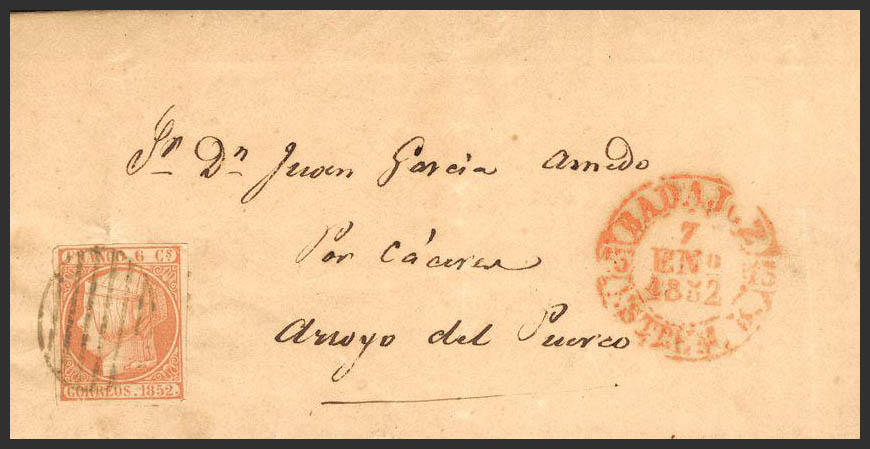 Sr. Dn. Juan Garcia Amedo
Por Cáceres
Arroyo del Puerco
FRANCO. 6 CS.
CORREOS. 1852.
BADAJOZ
7
ENº
1852